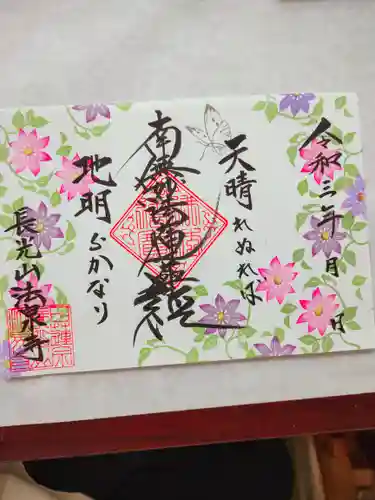 令和三年 月 日
天晴れぬれば
南無妙法蓮華経
地明らかなり
長光山法泉寺